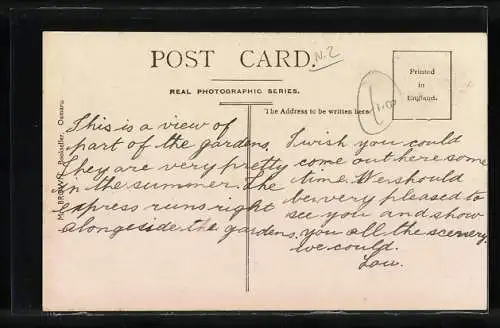 POST CARD.
N.Z
REAL PHOTOGRAPHIC SERIES.
The Address to be written here.
Printed
in
England.
1.00
BROWN, Bookseller, Oamaru
This is a view of
part of the gardens.
They are very pretty
in the summer. The
express runs right
alongside the gardens.
I wish you could
come out here some
time. We should
be very pleased to
see you and show
you all the scenery
we could.
Lou.